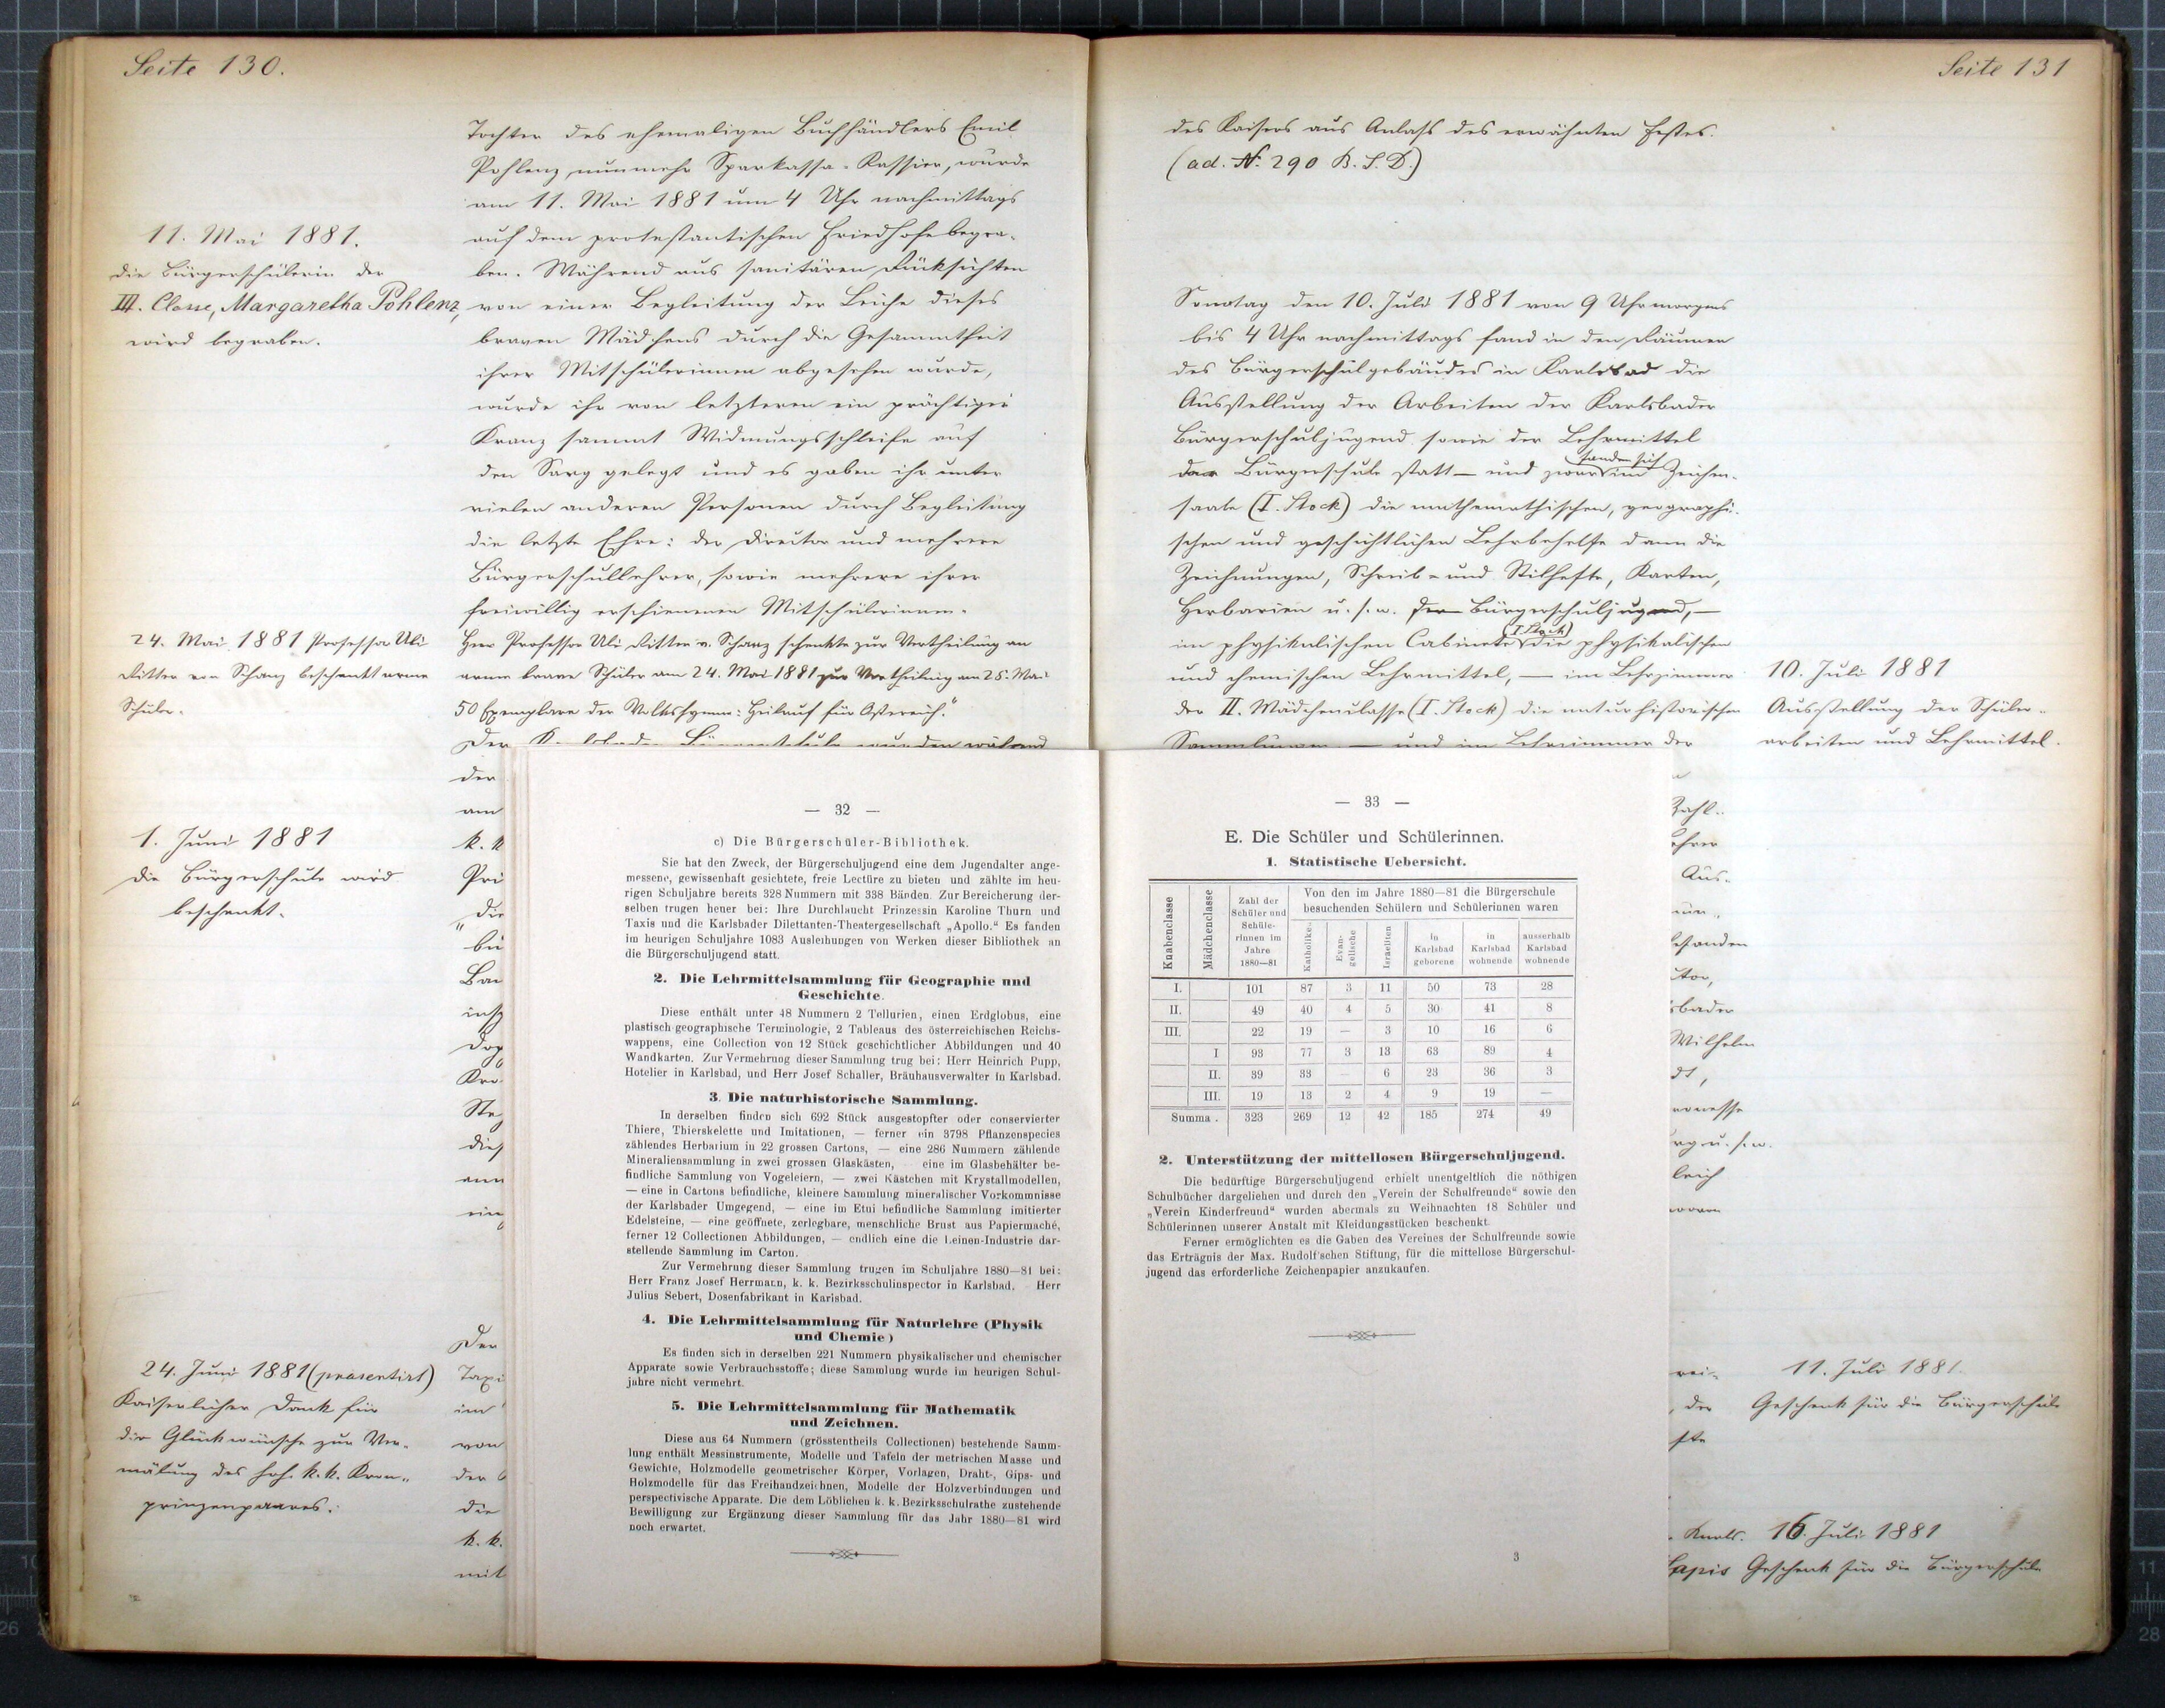 Seite 130.
Tochter des ehemaligen Buchhändlers Emil
Pohlenz, nunmehr Sparkassa-Kassier, wurde
am 11. Mai 1881 um 4 Uhr nachmittags
auf dem protestantischen Friedhofe begra-
ben. Während aus sanitären Rücksichten
von einer Begleitung der Leiche dieses
braven Mädchens durch die Gesammtheit
ihrer Mitschülerinnen abgesehen wurde,
wurde ihr von letzteren ein prächtiger
Kranz sammt Widmungsschleife auf
den Sarg gelegt und es gaben ihr unter
vielen anderen Personen durch Begleitung
die letzte Ehre: der Director und mehrere
Bürgerschullehrer, sowie mehrere ihrer
freiwillig erschienenen Mitschülerinnen.
Herr Professor Uli Ritter v. Schanz schenkte zur Vertheilung an
arme brave Schüler am 24. Mai 1881 zur Vertheilung am 25. Mai
50 Exemplare der Volkshymne: Heil auf für Österreich."
Der Karlsbader Bürgerschule wurden während
der
am
k. k
Pri
die
bü
Ban
insp
Dop
Kro
Ste
dies
ein
Der
Taxi
im
von
der
die
k. k.
mit
11. Mai 1881.
die Bürgerschülerin der
III. Classe, Margaretha Pohlenz,
wird begraben.
24. Mai 1881 Professor Uli
Ritter von Schanz beschenkt arme
Schüler.
1. Juni 1881
die Bürgerschule wird
beschenkt.
24. Juni 1881 (präsentirt)
Kaiserlicher Dank für
die Glückwünsche zur Ver-
mälung des hoh. k. k. Kron-
prinzenpaares.
— 32 —
c) Die Bürgerschüler-Bibliothek.
Sie hat den Zweck, der Bürgerschuljugend eine dem Jugendalter ange-
messene, gewissenhaft gesichtete, freie Lectüre zu bieten und zählte im heu-
rigen Schuljahre bereits 328 Nummern mit 338 Bänden. Zur Bereicherung der-
selben trugen heuer bei: Ihre Durchlaucht Prinzessin Karoline Thurn und
Taxis und die Karlsbader Dilettanten-Theatergesellschaft „Apollo.“ Es fanden
im heurigen Schuljahre 1083 Ausleihungen von Werken dieser Bibliothek an
die Bürgerschuljugend statt.
2. Die Lehrmittelsammlung für Geographie und
Geschichte.
Diese enthält unter 48 Nummern 2 Tellurien, einen Erdglobus, eine
plastisch-geographische Terminologie, 2 Tableaus des österreichischen Reichs-
wappens, eine Collection von 12 Stück geschichtlicher Abbildungen und 40
Wandkarten. Zur Vermehrung dieser Sammlung trug bei: Herr Heinrich Pupp,
Hotelier in Karlsbad, und Herr Josef Schaller, Bräuhausverwalter in Karlsbad.
3. Die naturhistorische Sammlung.
In derselben finden sich 692 Stück ausgestopfter oder conservierter
Thiere, Thierskelette und Imitationen, — ferner ein 3798 Pflanzenspecies
zählendes Herbarium in 22 grossen Cartons, — eine 286 Nummern zählende
Mineraliensammlung in zwei grossen Glaskästen, eine im Glasbehälter be-
findliche Sammlung von Vogeleiern, — zwei Kästchen mit Krystallmodellen,
— eine in Cartons befindliche, kleinere Sammlung mineralischer Vorkommnisse
der Karlsbader Umgegend, — eine im Etui befindliche Sammlung imitierter
Edelsteine, — eine geöffnete, zerlegbare, menschliche Brust aus Papiermaché,
ferner 12 Collectionen Abbildungen, — endlich eine die Leinen-Industrie dar-
stellende Sammlung im Carton.
Zur Vermehrung dieser Sammlung trugen im Schuljahre 1880—81 bei:
Herr Franz Josef Herrmann, k. k. Bezirksschulinspector in Karlsbad, Herr
Julius Sebert, Dosenfabrikant in Karlsbad.
4. Die Lehrmittelsammlung für Naturlehre (Physik
und Chemie)
Es finden sich in derselben 221 Nummern physikalischer und chemischer
Apparate sowie Verbrauchsstoffe; diese Sammlung wurde im heurigen Schul-
jahre nicht vermehrt.
5. Die Lehrmittelsammlung für Mathematik
und Zeichnen.
Diese aus 64 Nummern (grösstentheils Collectionen) bestehende Samm-
lung enthält Messinstrumente, Modelle und Tafeln der metrischen Masse und
Gewichte, Holzmodelle geometrischer Körper, Vorlagen, Draht-, Gips- und
Holzmodelle für das Freihandzeichnen, Modelle der Holzverbindungen und
perspectivische Apparate. Die dem Löblichen k. k. Bezirksschulrathe zustehende
Bewilligung zur Ergänzung dieser Sammlung für das Jahr 1880—81 wird
noch erwartet.
Seite 131
des Kaisers aus Anlass des erwähnten Festes.
(ad. N: 290 B. S. D.)
Sonntag den 10. Juli 1881 von 9 Uhr morgens
bis 4 Uhr nachmittags fand in den Räumen
des Bürgerschulgebäudes in Karlsbad die
Ausstellung der Arbeiten der Karlsbader
Bürgerschuljugend sowie der Lehrmittel
fanden sich
der Bürgerschule statt — und zwar im Zeichen-
saale (I. Stock) die mathematischen, geographi-
schen und geschichtlichen Lehrbehelfe dann die
Zeichnungen, Schreib- und Stilhefte, Karten,
Herbarien u. s. w. der Bürgerschuljugend, —
(I. Stock)
im physikalischen Cabinete die physikalischen
und chemischen Lehrmittel, — im Lehrzimmer
der II. Mädchenclasse (I. Stock) die naturhistorischen
Sammlungen — und im Lehrzimmer der
Zahl
ehrer
Aus-
ctor,
sbader
Wilhelm
dt,
rg u. s. w.
leich
rei-
der
fte
Karls.
Lapis
10. Juli 1881
Ausstellung der Schüler-
arbeiten und Lehrmittel.
11. Juli 1881.
Geschenk für die Bürgerschule
16. Juli 1881
Geschenk für die Bürgerschule
— 33 —
E. Die Schüler und Schülerinnen.
1. Statistische Uebersicht.
Knabenclasse
Mädchenclasse
Zahl der Schüler und Schüle-rinnen im Jahre 1880—81
Von den im Jahre 1880—81 die Bürgerschule
besuchenden Schülern und Schülerinnen waren
Katholiken
Evan-gelische
Israeliten
in Karlsbad geborene
in Karlsbad wohnende
ausserhalb Karlsbad wohnende
I. 101 87 3 11 50 73 28
II. 49 40 4 5 30 41 8
III. 22 19 — 3 10 16 6
I 93 77 3 13 63 89 4
II. 39 33 — 6 23 36 3
III. 19 13 2 4 9 19 —
Summa . 323 269 12 42 185 274 49
2. Unterstützung der mittellosen Bürgerschuljugend.
Die bedürftige Bürgerschuljugend erhielt unentgeltlich die nöthigen
Schulbücher dargeliehen und durch den „Verein der Schulfreunde“ sowie den
„Verein Kinderfreund“ wurden abermals zu Weihnachten 18 Schüler und
Schülerinnen unserer Anstalt mit Kleidungsstücken beschenkt.
Ferner ermöglichten es die Gaben des Vereines der Schulfreunde sowie
das Erträgnis der Max. Rudolf'schen Stiftung, für die mittellose Bürgerschul-
jugend das erforderliche Zeichenpapier anzukaufen.
3